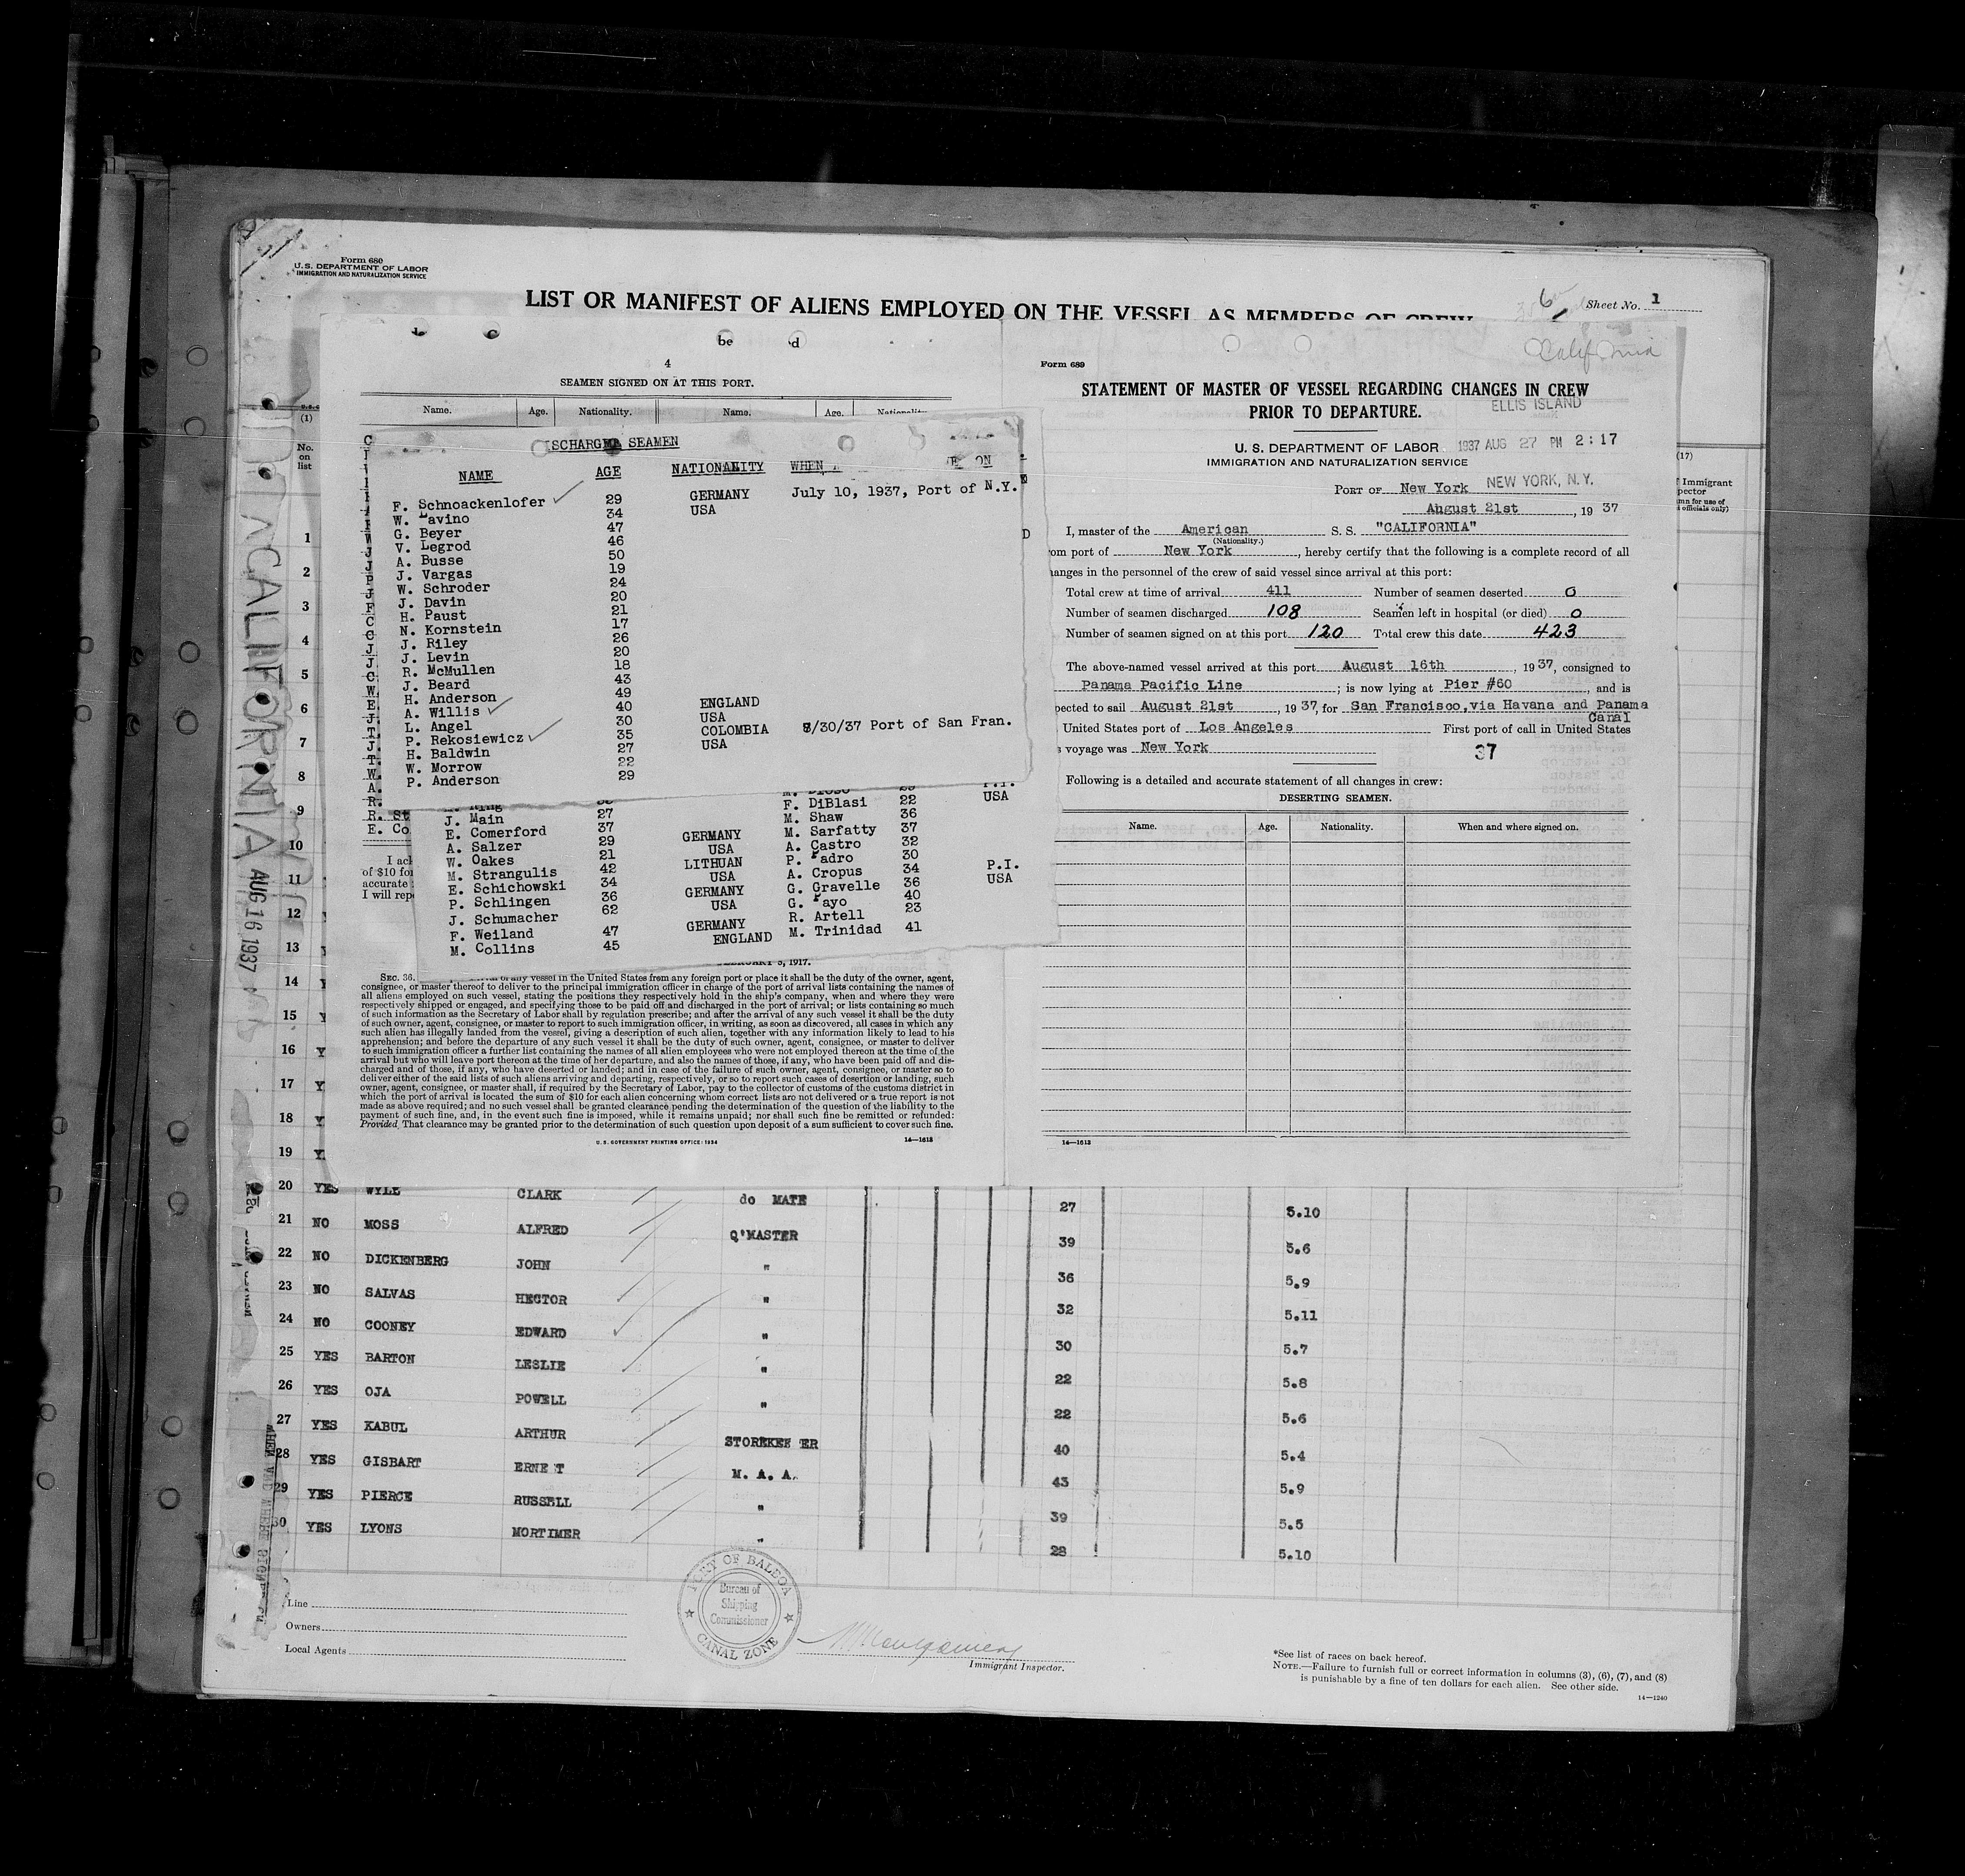 Form 680
U. S. DEPARTMENT OF LABOR
IMMIGRATION AND NATURALIZATION SERVICE
LIST OR MANIFEST OF ALIENS EMPLOYED ON THE VESSEL AS MEMBERS OF CREW
6
Sheet No. 1
California
be d
4
SEAMEN SIGNED ON AT THIS PORT.
Name. Age. Nationality. Name. Age. Nationality.
SCHARGED SEAMEN
NAME AGE NATIONALITY WHEN ON
F. Schnoackenlofer 29 GERMANY July 10, 1937, Port of N.Y.
W. Lavino 34 USA
G. Beyer 47
V. Legrod 46
A. Busse 50
J. Vargas 19
W. Schroder 24
J. Davin 20
H. Paust 21
N. Kornstein 17
J. Riley 26
J. Levin 20
R. McMullen 18
J. Beard 43
H. Anderson 49
A. Willis 40 ENGLAND
L. Angel 30 USA
P. Rekosiewicz 35 COLOMBIA 8/30/37 Port of San Fran.
H. Baldwin 27 USA
W. Morrow 22
P. Anderson 29
King
J. Main 27
E. Comerford 37
A. Salzer 29 GERMANY
W. Oakes 21 USA
M. Strangulis 42 LITHUAN
E. Schichowski 34 USA
P. Schlingen 36 GERMANY
J. Schumacher 62 USA
F. Weiland 47 GERMANY
M. Collins 45 ENGLAND
P.I.
F. DiBlasi 22 USA
M. Shaw 36
M. Sarfatty 37
A. Castro 32
P. Padro 30
A. Cropus 34 P.I.
G. Gravelle 36 USA
G. Payo 40
R. Artell 23
M. Trinidad 41
R. St
E. Co
I ack
of $10 for
accurate
I will rep
5, 1917.
SEC. 36. of any vessel in the United States from any foreign port or place it shall be the duty of the owner, agent,
consignee, or master thereof to deliver to the principal immigration officer in charge of the port of arrival lists containing the names of
all aliens employed on such vessel, stating the positions they respectively hold in the ship's company, when and where they were
respectively shipped or engaged, and specifying those to be paid off and discharged in the port of arrival; or lists containing so much
of such information as the Secretary of Labor shall by regulation prescribe; and after the arrival of any such vessel it shall be the duty
of such owner, agent, consignee, or master to report to such immigration officer, in writing, as soon as discovered, all cases in which any
such alien has illegally landed from the vessel, giving a description of such alien, together with any information likely to lead to his
apprehension; and before the departure of any such vessel it shall be the duty of such owner, agent, consignee, or master to deliver
to such immigration officer a further list containing the names of all alien employees who were not employed thereon at the time of the
arrival but who will leave port thereon at the time of her departure, and also the names of those, if any, who have been paid off and dis-
charged and of those, if any, who have deserted or landed; and in case of the failure of such owner, agent, consignee, or master so to
deliver either of the said lists of such aliens arriving and departing, respectively, or so to report such cases of desertion or landing, such
owner, agent, consignee, or master shall, if required by the Secretary of Labor, pay to the collector of customs of the customs district in
which the port of arrival is located the sum of $10 for each alien concerning whom correct lists are not delivered or a true report is not
made as above required; and no such vessel shall be granted clearance pending the determination of the question of the liability to the
payment of such fine, and, in the event such fine is imposed, while it remains unpaid; nor shall such fine be remitted or refunded:
Provided, That clearance may be granted prior to the determination of such question upon deposit of a sum sufficient to cover such fine.
U. S. GOVERNMENT PRINTING OFFICE: 1934 14—1613
Form 689
STATEMENT OF MASTER OF VESSEL REGARDING CHANGES IN CREW
PRIOR TO DEPARTURE.
ELLIS ISLAND
U. S. DEPARTMENT OF LABOR 1937 AUG 27 PM 2:17
IMMIGRATION AND NATURALIZATION SERVICE
PORT OF New York NEW YORK, N.Y.
August 21st, 1937
I, master of the American S. S. "CALIFORNIA"
(Nationality.)
om port of New York, hereby certify that the following is a complete record of all
anges in the personnel of the crew of said vessel since arrival at this port:
Total crew at time of arrival 411 Number of seamen deserted 0
Number of seamen discharged 108 Seamen left in hospital (or died) 0
Number of seamen signed on at this port 120 Total crew this date 423
The above-named vessel arrived at this port August 16th, 1937, consigned to
Panama Pacific Line; is now lying at Pier #60, and is
pected to sail August 21st, 1937 for San Francisco, via Havana and Panama
Canal
United States port of Los Angeles First port of call in United States
s voyage was New York 37
Following is a detailed and accurate statement of all changes in crew:
DESERTING SEAMEN.
Name. Age. Nationality. When and where signed on.
14—1613
(17)
Immigrant
pector
mn for use of
officials only)
(1)
No.
on
list
1
2
3
4
5
6
7
8
9
10
11
12
13
14
15
16 Y
17 Y
18 Y
19 Y
20 YES WYLE CLARK do MATE 27 5.10
21 NO MOSS ALFRED Q'MASTER 39 5.6
22 NO DICKENBERG JOHN " 36 5.9
23 NO SALVAS HECTOR " 32 5.11
24 NO COONEY EDWARD " 30 5.7
25 YES BARTON LESLIE " 22 5.8
26 YES OJA POWELL " 22 5.6
27 YES KABUL ARTHUR STOREKEE ER 40 5.4
28 YES GISBART ERNE T M. A. A. 43 5.9
29 YES PIERCE RUSSELL " 39 5.5
30 YES LYONS MORTIMER " 28 5.10
CALIFORNIA AUG 16 1937
Line
Owners
Local Agents
PORT OF BALBOA
Bureau of
Shipping
Commissioner
CANAL ZONE
Montgomery
Immigrant Inspector.
*See list of races on back hereof.
NOTE.—Failure to furnish full or correct information in columns (3), (6), (7), and (8)
is punishable by a fine of ten dollars for each alien. See other side.
14—1240